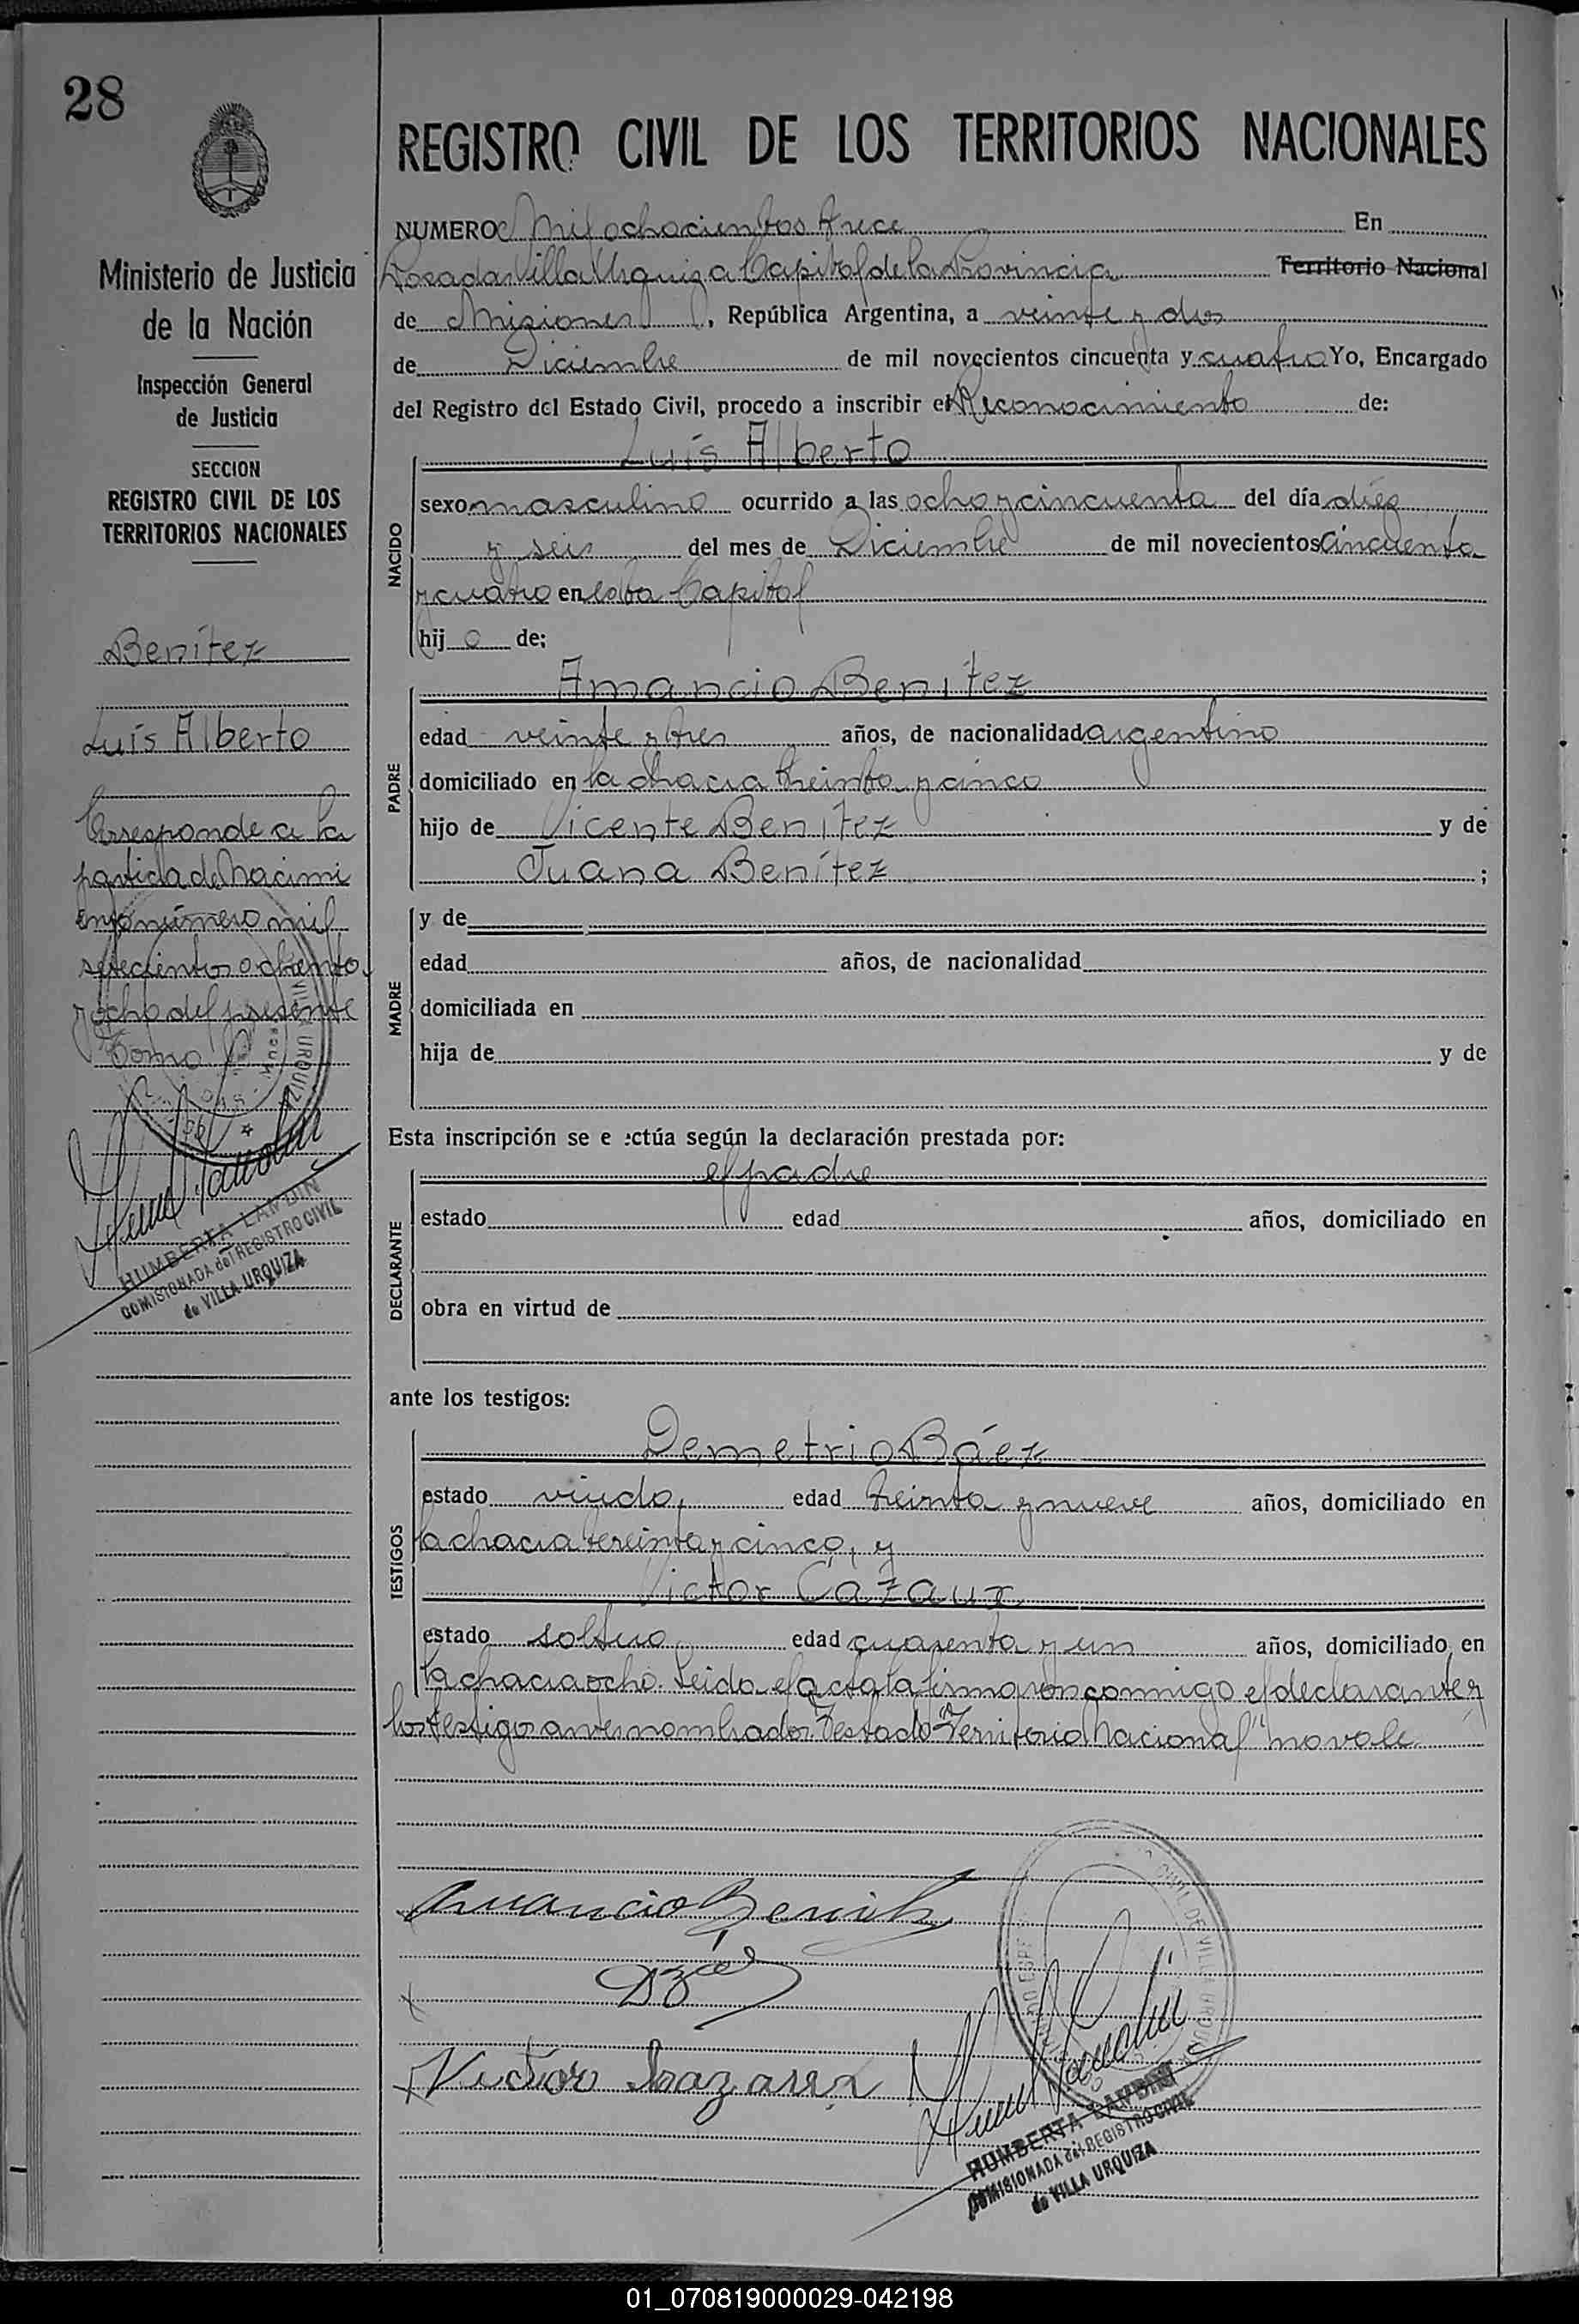 28
Ministerio de Justicia
de la Nación
Inspección General
de Justicia
SECCION
REGISTRO CIVIL DE LOS
TERRITORIOS NACIONALES
Benítez
Luís Alberto
Corresponde a la
partida de Nacimi
ento número mil
setecientos ochenta
y ocho del presente
Tomo
HUMBERTA LANDIN
COMISIONADA del REGISTRO CIVIL
de VILLA URQUIZA
REGISTRO CIVIL DE LOS TERRITORIOS NACIONALES
NUMERO Mil ochocientos trece En
Posadas Villa Urquiza Capital de la Provincia Territorio Nacional
de Misiones, República Argentina, a veinte y dos
de Diciembre de mil novecientos cincuenta y cuatro Yo, Encargado
del Registro del Estado Civil, procedo a inscribir el Reconocimiento de:
Luís Alberto
NACIDO
sexo masculino ocurrido a las ocho y cincuenta del día diéz
y seis del mes de Diciembre de mil novecientos Cincuenta
y cuatro en esta Capital
hij o de:
Amancio Benítez
PADRE
edad veinte y tres años, de nacionalidad argentino
domiciliado en la chacra treinta y cinco
hijo de Vicente Benítez y de
Juana Benítez ;
MADRE
y de
edad años, de nacionalidad
domiciliada en
hija de y de
Esta inscripción se e ectúa según la declaración prestada por:
el padre
DECLARANTE
estado edad años, domiciliado en
obra en virtud de
ante los testigos:
Demetrio Báez
TESTIGOS
estado viudo, edad treinta y nueve años, domiciliado en
la chacra tereinta y cinco, y
Victor Cazaux
estado soltero edad cuarenta y un años, domiciliado en
la chacra ocho. Leida el acta la firmaron conmigo el declarante y
los testigos antes nombrados. Testado "Territorio Nacional" no vale
Amancio Benitez
Victor
VILLA URQUIZA
HUMBERTA LANDIN
COMISIONADA del REGISTRO CIVIL
de VILLA URQUIZA
01_070819000029-042198